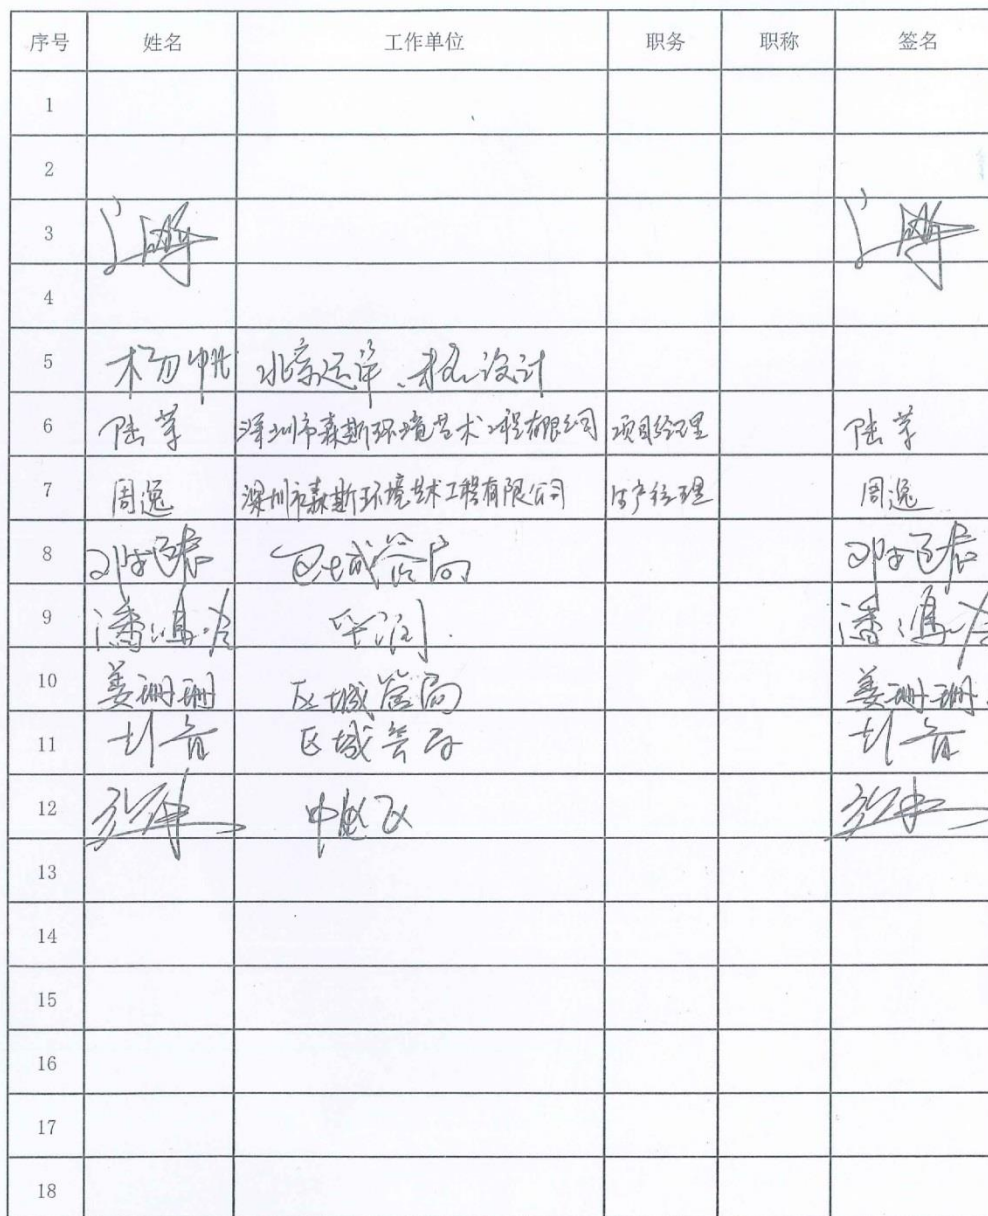 序号 姓名 工作单位 职务 职称 签名
1
2
3
4
5 设计
6 陆芋 深圳市森斯环境艺术工程有限公司 项目经理 陆芋
7 周逸 深圳市森斯环境艺术工程有限公司 生产经理 周逸
8 区城管局
9 潘鸿 华润 潘鸿
10 姜珊珊 区城管局 姜珊珊
11 区城管局
12
13
14
15
16
17
18